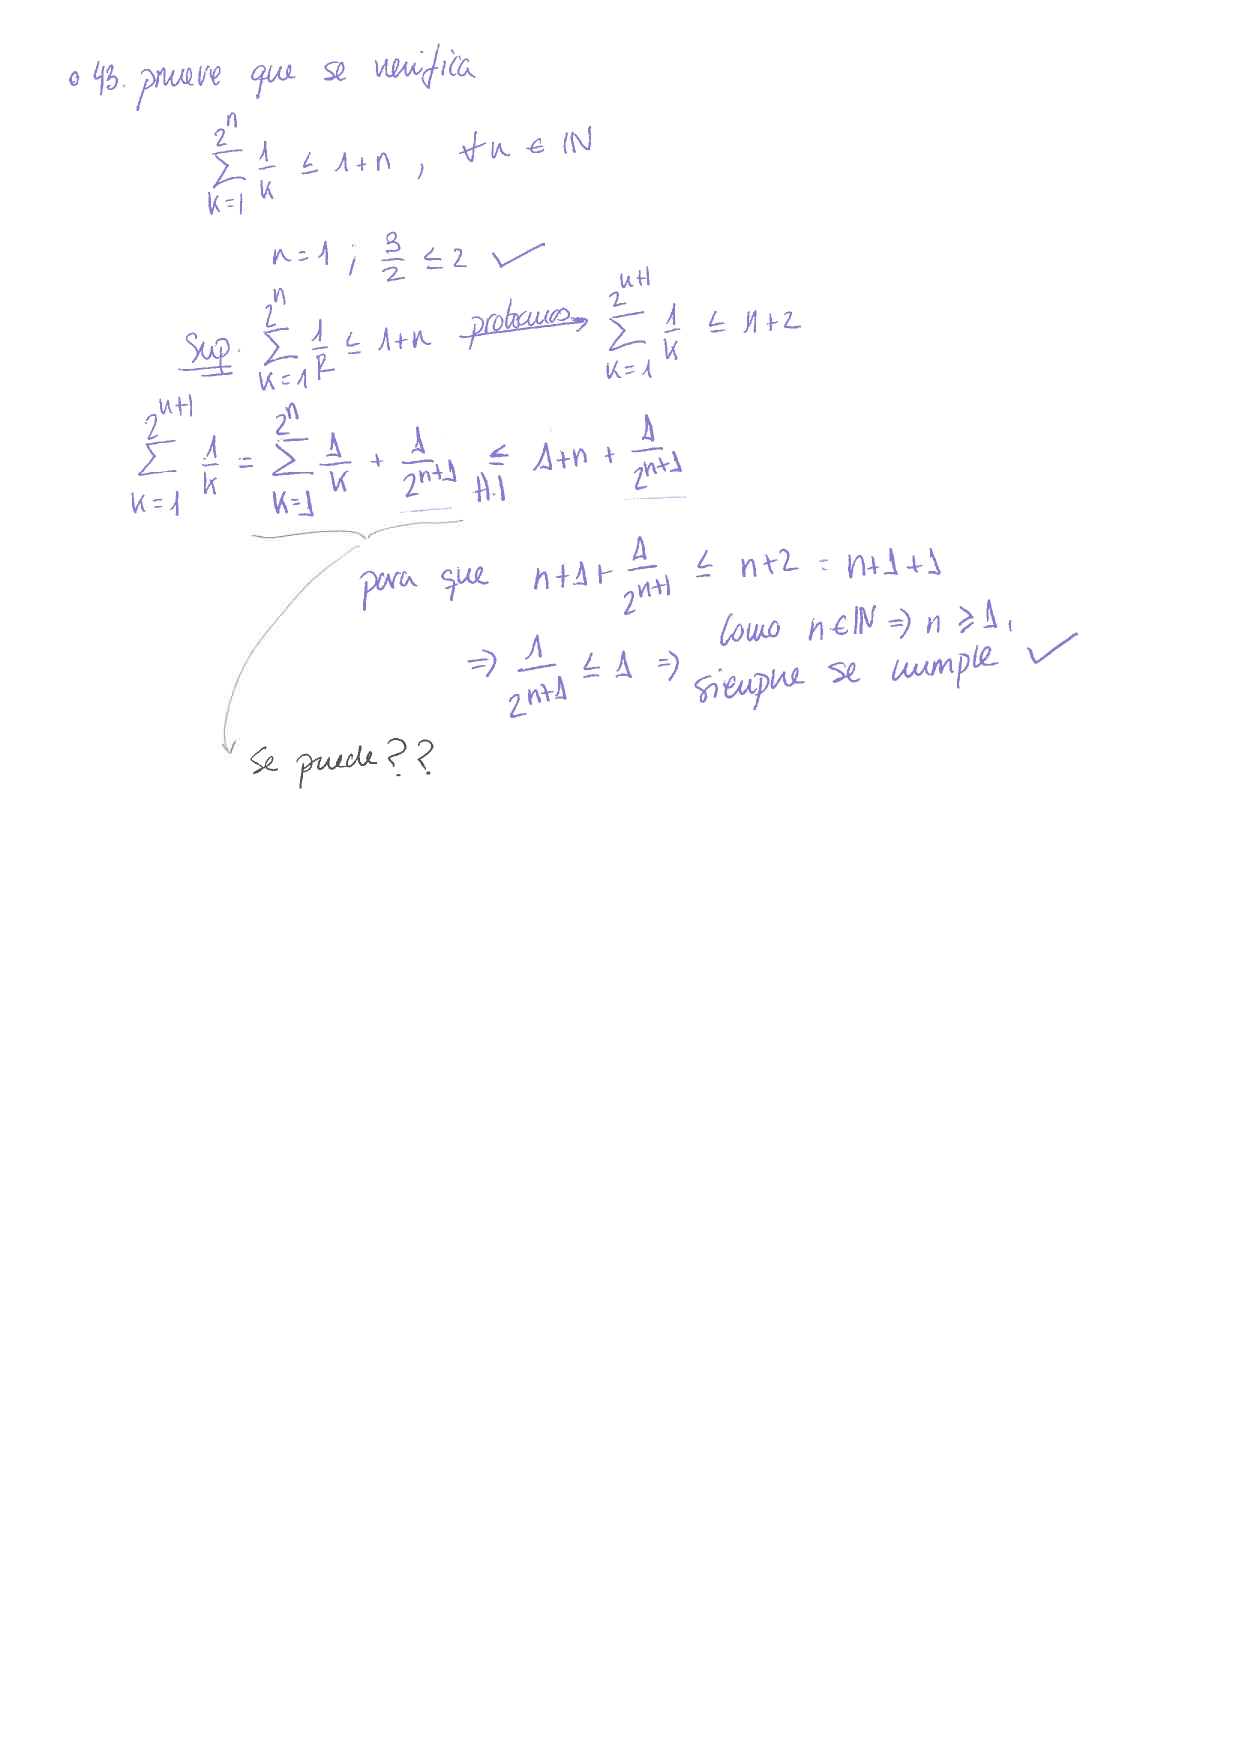 43. prueve que se verifica
∑_{k=1}^{2^n} 1/k ≤ 1+n, ∀n ∈ ℕ
n=1; 3/2 ≤ 2 ✓
Sup. ∑_{k=1}^{2^n} 1/k ≤ 1+n probamos → ∑_{k=1}^{2^{n+1}} 1/k ≤ n+2
∑_{k=1}^{2^{n+1}} 1/k = ∑_{k=1}^{2^n} 1/k + 1/2^{n+1} ≤ H.I 1+n + 1/2^{n+1}
para que n+1+ 1/2^{n+1} ≤ n+2 = n+1+1
⇒ 1/2^{n+1} ≤ 1 ⇒ Como n∈ℕ ⇒ n ≥ 1,
siempre se cumple ✓
Se puede??